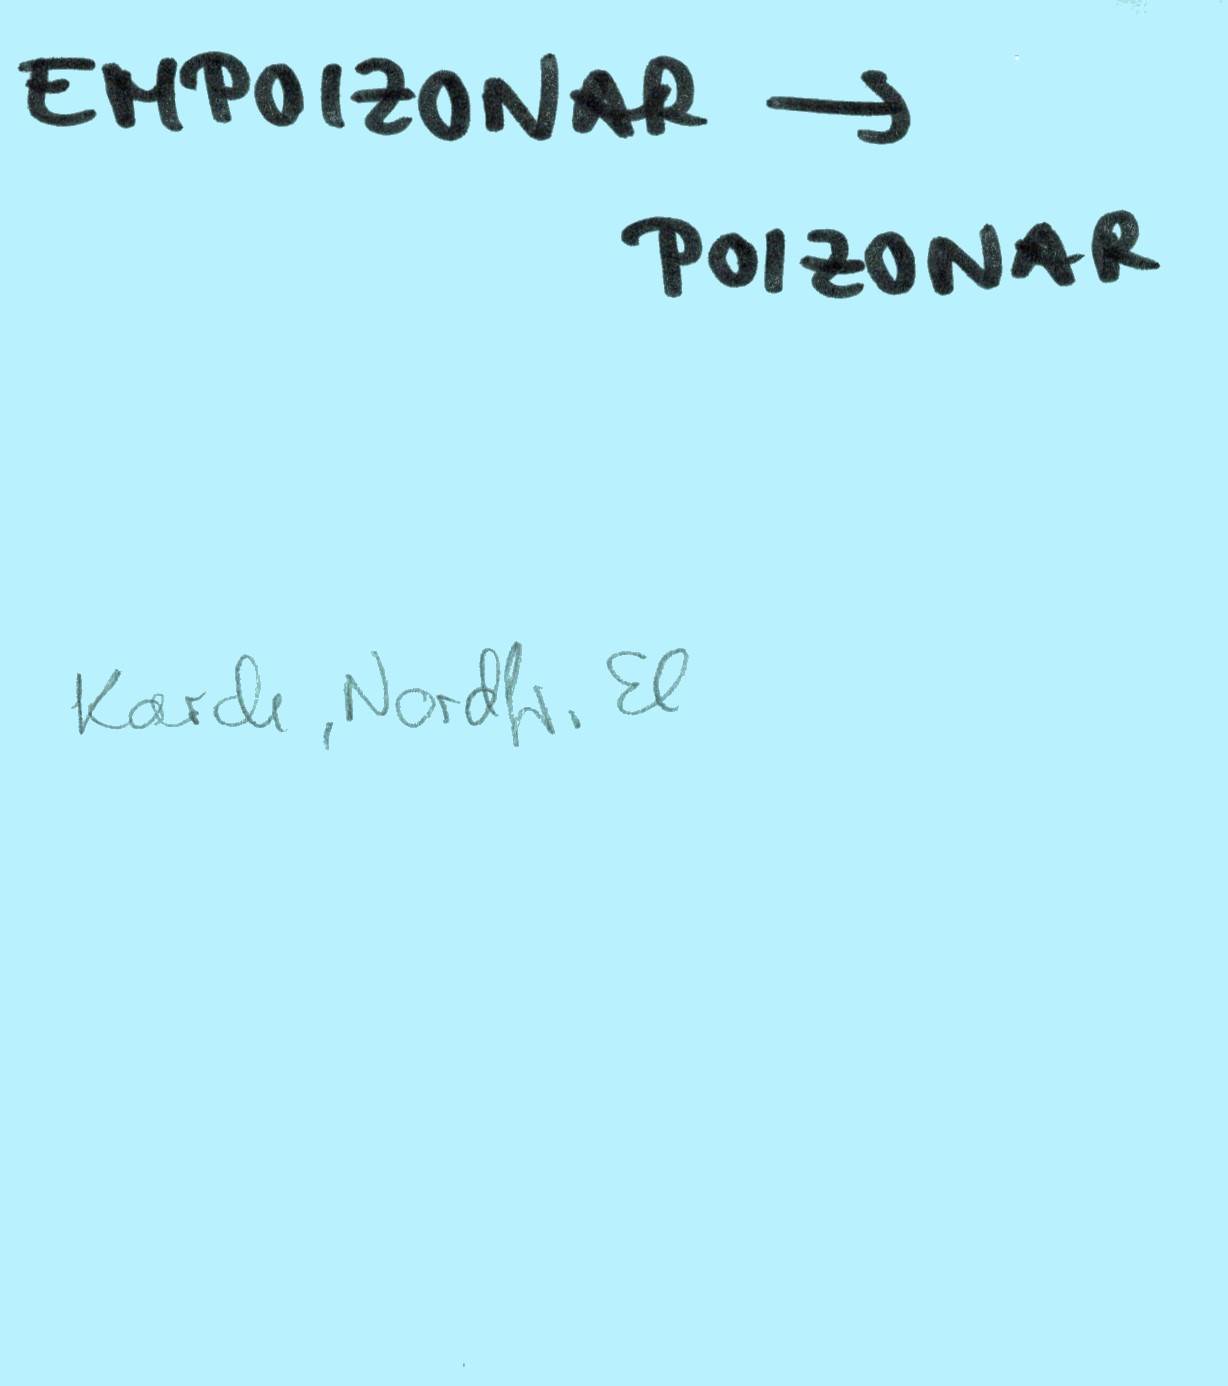 EMPOIZONAR →
POIZONAR
Karch, Nordfr. El